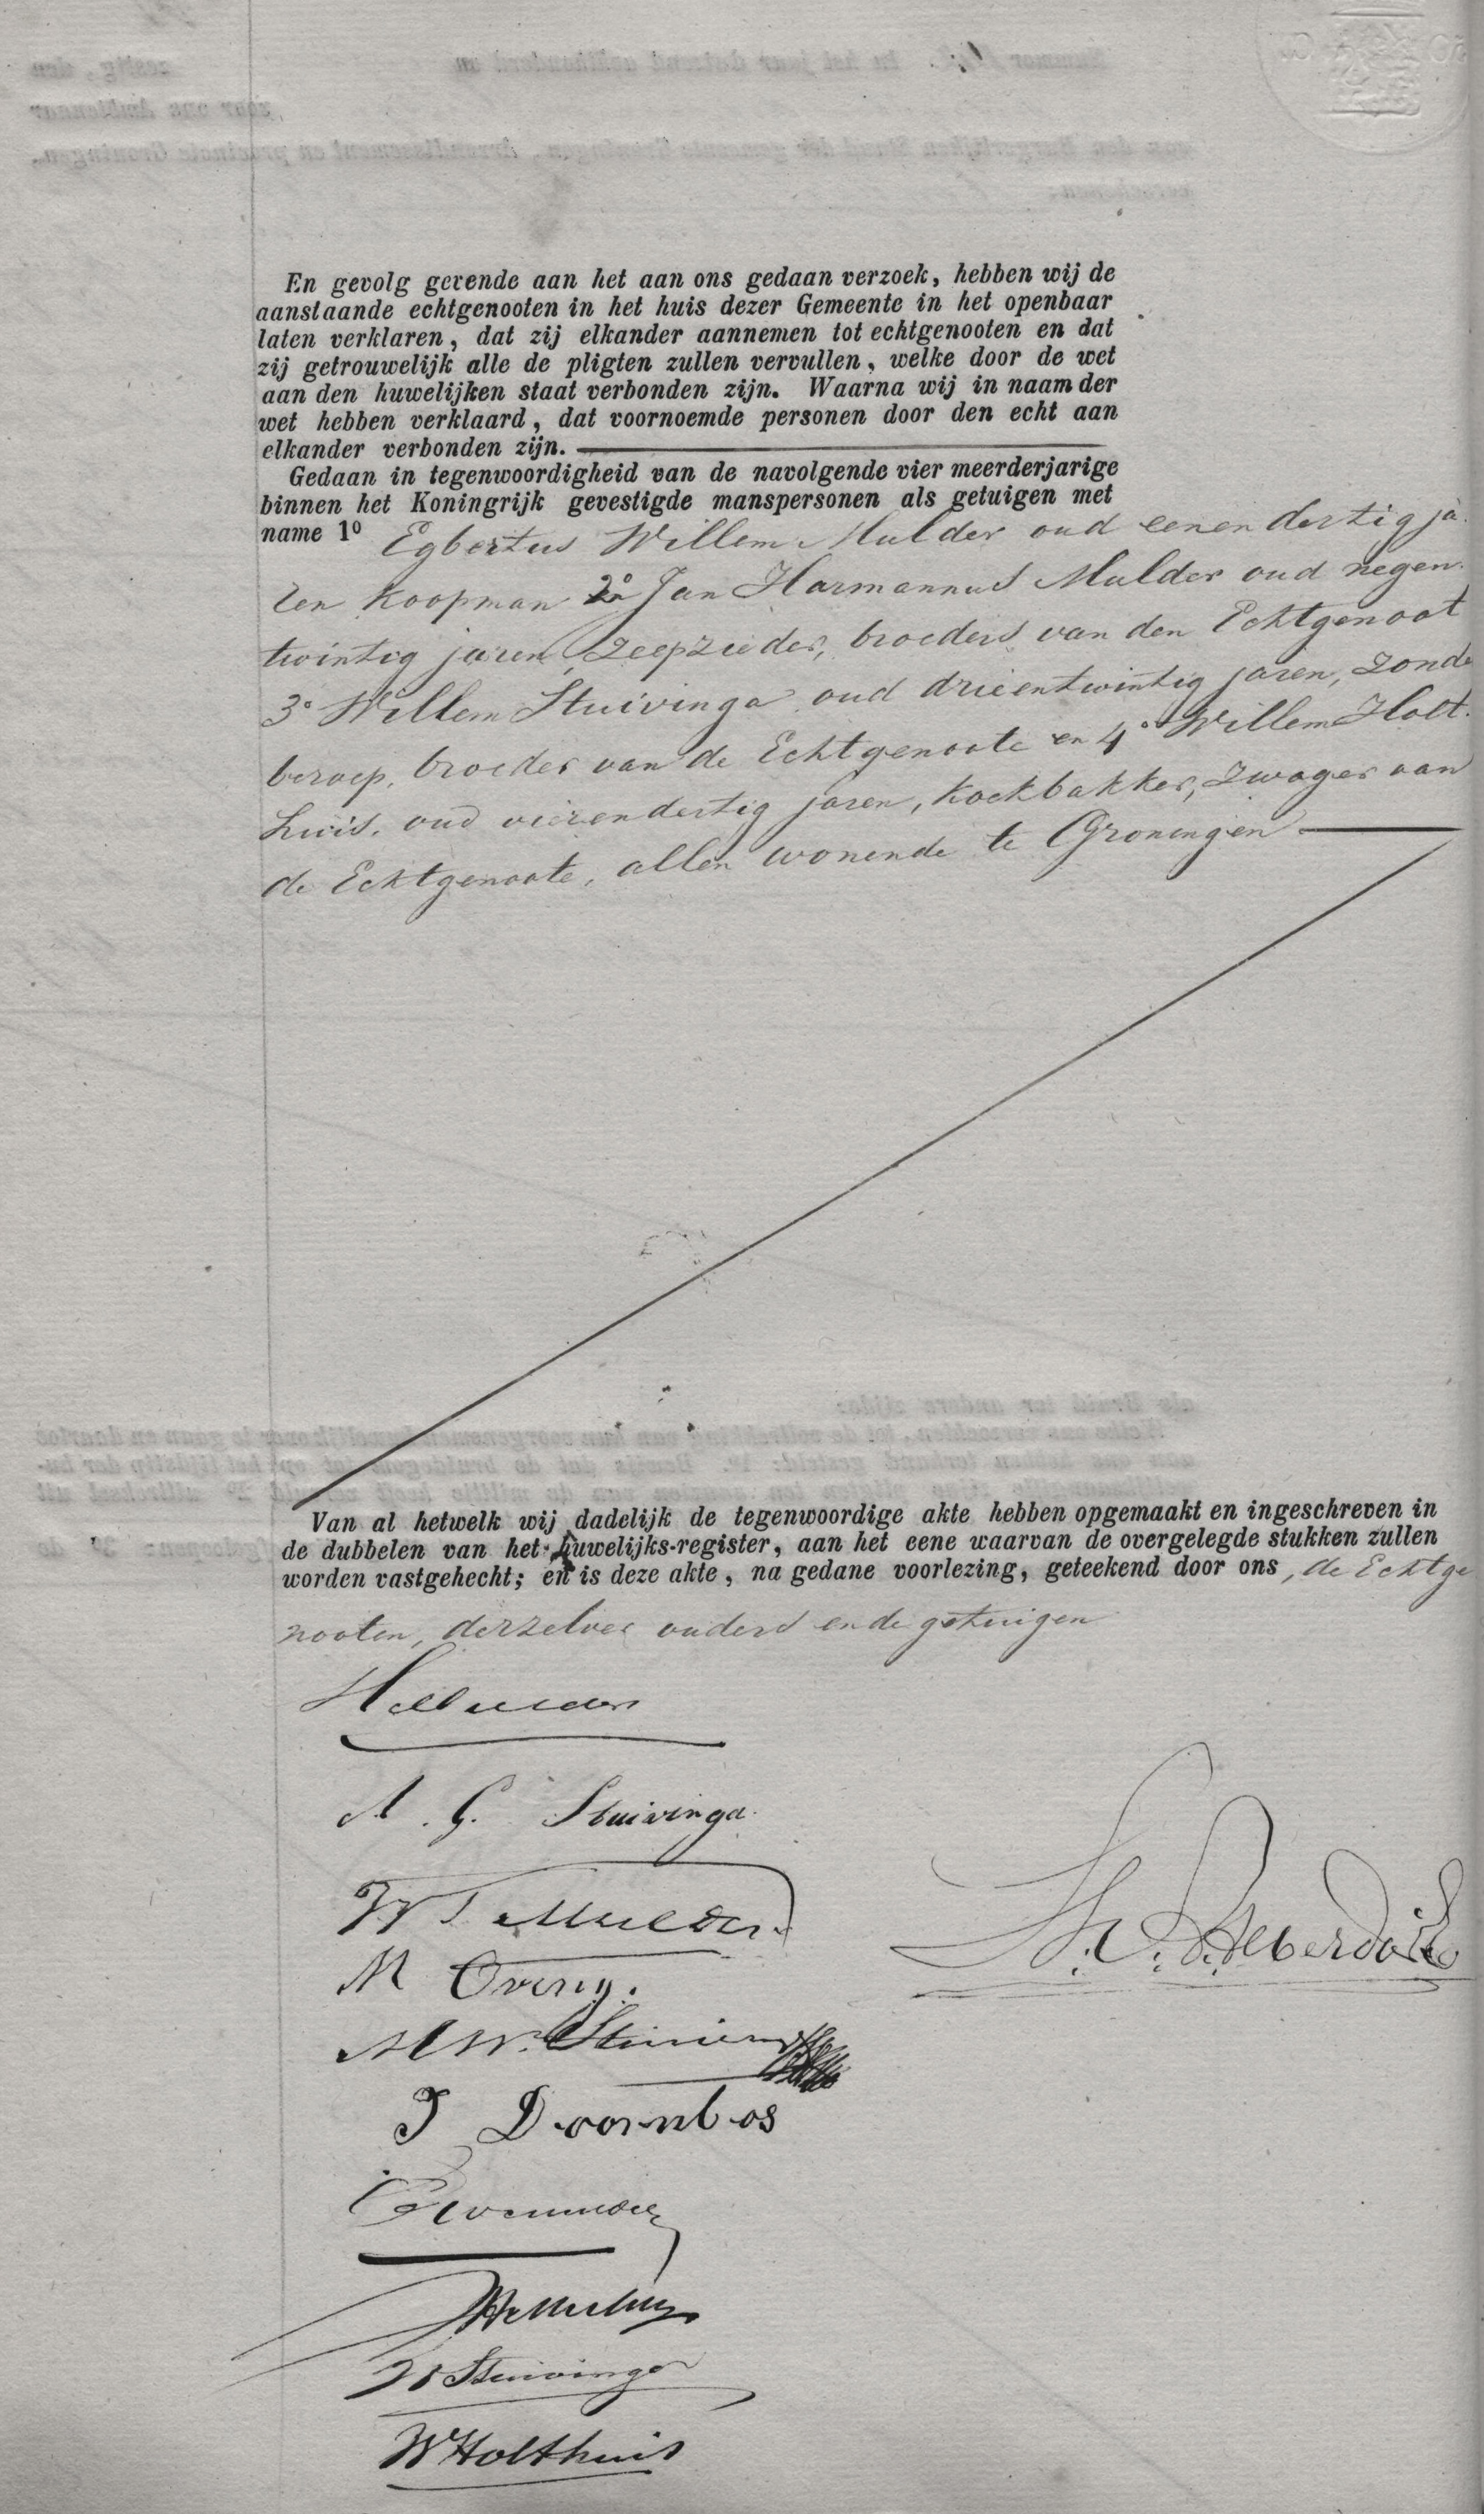 En gevolg gevende aan het aan ons gedaan verzoek, hebben wij de
aanstaande echtgenooten in het huis dezer Gemeente in het openbaar
laten verklaren, dat zij elkander aannemen tot echtgenooten en dat
zij getrouwelijk alle de pligten zullen vervullen, welke door de wet
aan den huwelijken staat verbonden zijn. Waarna wij in naam der
wet hebben verklaard, dat voornoemde personen door den echt aan
elkander verbonden zijn.
Gedaan in tegenwoordigheid van de navolgende vier meerderjarige
binnen het Koningrijk gevestigde manspersonen als getuigen met
name 1o Egbertus Willem Mulder oud eenen dertig ja
ren koopman 2o Jan Harmannus Mulder oud negen
twintig jaren, zeepzieder, broeders van den Echtgenoot
3o Willem Stuivinga oud drieentwintig jaren, zonde
beroep, broeder van de Echtgenoote en 4o Willem Holt
huis, oud vierendertig jaren, koekbakker, zwager van
de Echtgenoote, allen wonende te Groningen
Van al hetwelk wij dadelijk de tegenwoordige akte hebben opgemaakt en ingeschreven in
de dubbelen van het huwelijks-register, aan het eene waarvan de overgelegde stukken zullen
worden vastgehecht; en is deze akte, na gedane voorlezing, geteekend door ons, de Echtge
nooten, derzelver ouders en de getuigen
A. G. Stuivinga
W J Mulder
M Oving.
M W. Stuivenga
J Doornbos
W Stuivinga
W Holthuis